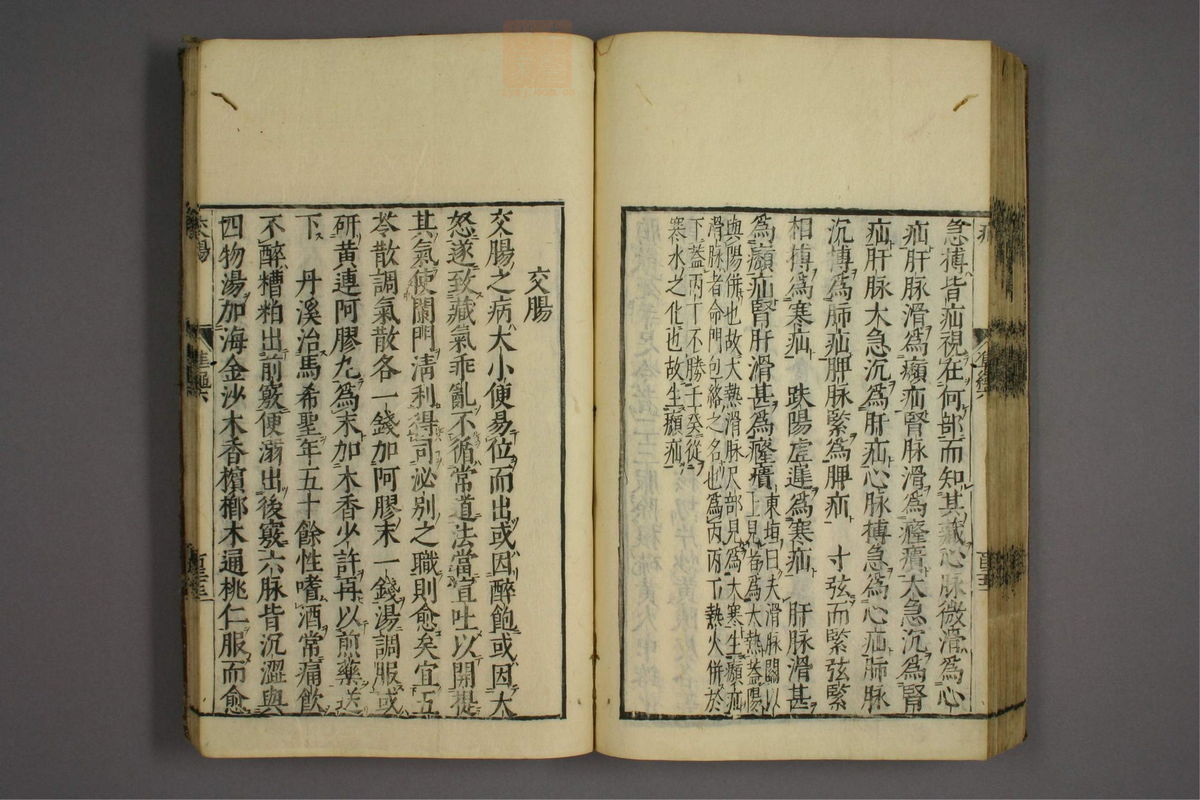 急搏皆疝視在何部而知其藏心脉微滑為心
疝肝脉滑為㿗疝腎脉滑為癃㿉大急沉為腎
疝肝脉大急沉為肝疝心脉搏急為心疝肺脉
沉搏為肺疝脾脉緊為脾疝 寸弦而緊弦緊
相搏為寒疝 趺陽虛遲為寒疝 肝脉滑甚
為㿗疝腎肝滑甚為癃㿉東垣曰夫滑脉關以上見者為大熱蓋陽
與陽併也故大熱滑脉尺部見為大寒生㿗疝
滑脉者命門包絡之名也為丙丙丁熱火併於
下蓋丙丁不勝壬癸從
寒水之化也故生㿗疝
交腸
交腸之病大小便易位而出或因醉飽或因大
怒遂致藏氣乖亂不循常道法當宣吐以開提
其氣使闌門清利得司泌別之職則愈矣宜五
苓散調氣散各一錢加阿膠末一錢湯調服或
研黃連阿膠丸為末加木香少許再以煎藥送
下 丹溪治馬希聖年五十餘性嗜酒常痛飲
不醉糟粕出前竅便溺出後竅六脉皆沉澀與
四物湯加海金沙木香檳榔木通桃仁服而愈
交腸